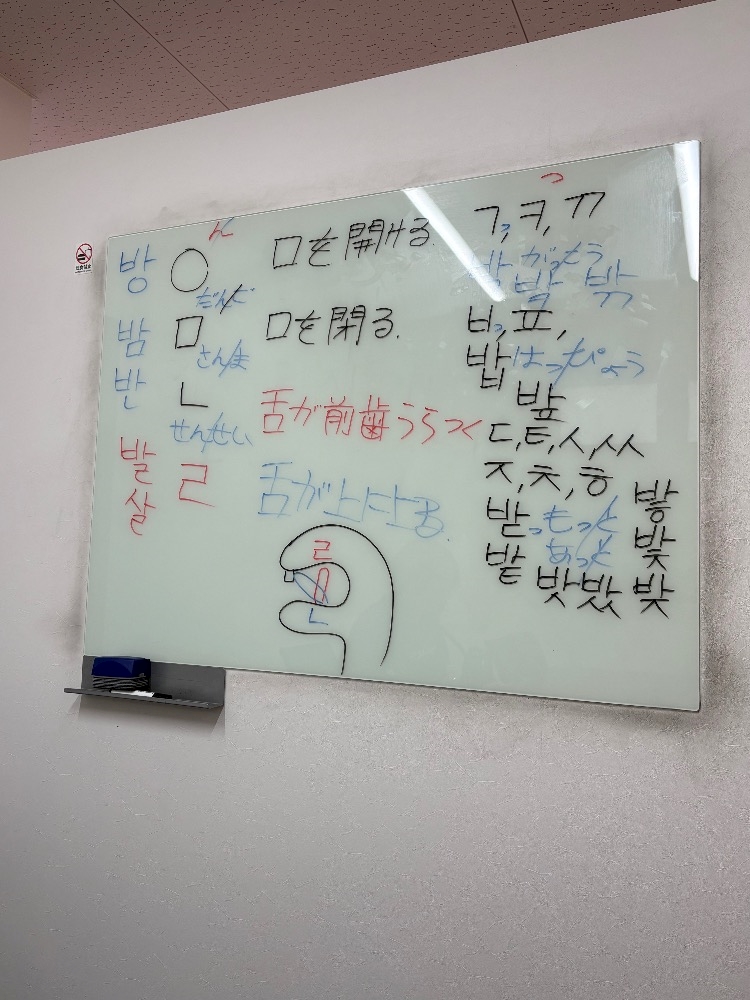 ん
방 ㅇ 口を開ける。
だんご
밤 ㅁ 口を閉る。
さんま
반 ㄴ 舌が前歯うらつく
せんせい
발 ㄹ 舌が上に上る。
살
ㄹ
ㄴ
っ
ㄱ, ㅋ, ㄲ
박 がっこう
밬 밖
ㅂ, ㅍ,
밥 はっぴょう
밮
ㄷ, ㅌ, ㅅ, ㅆ
ㅈ, ㅊ, ㅎ
받 もっと 밯
밭 あっと 밫
밧 밨 밪